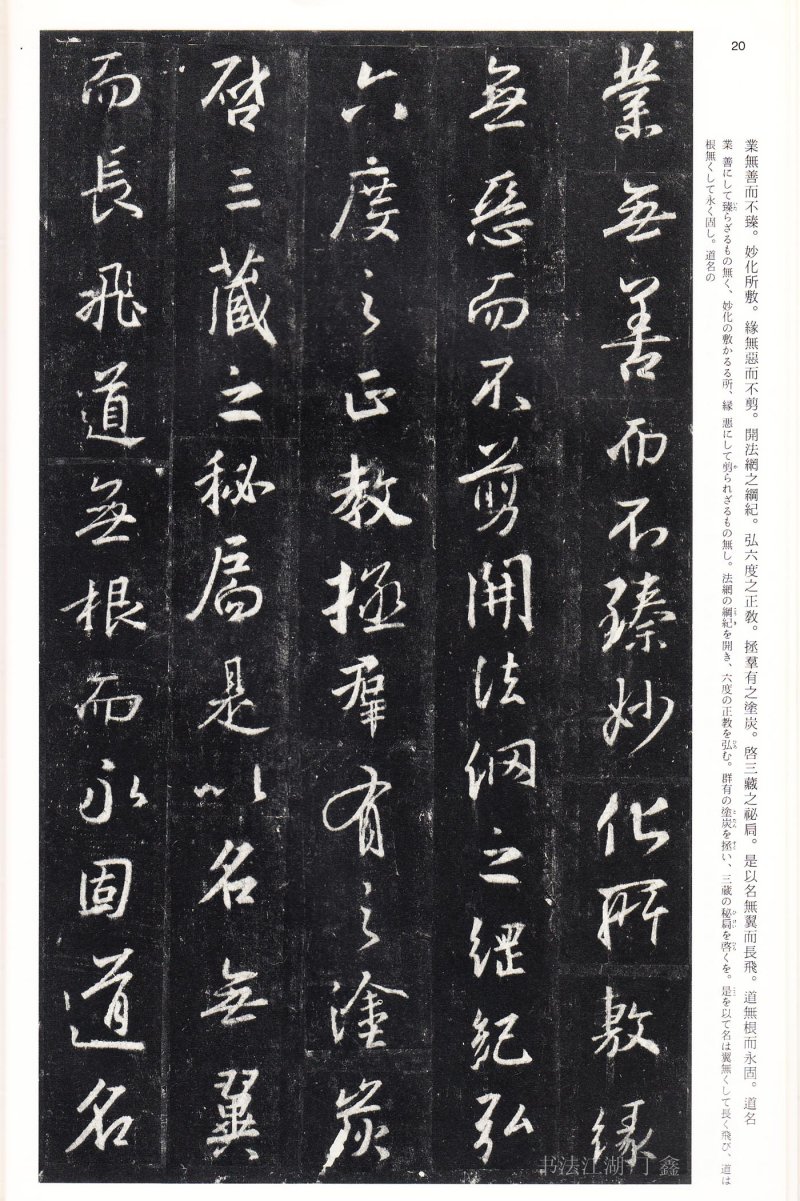 20
業無善而不臻。妙化所敷。緣無惡而不剪。開法網之綱紀。弘六度之正敎。拯羣有之塗炭。啓三藏之祕扃。是以名無翼而長飛。道無根而永固。道名
業 善にして臻らざるもの無く、妙化の敷かるる所、縁 悪にして剪られざるもの無し。法網の綱紀を開き、六度の正教を弘む。群有の塗炭を拯い、三蔵の秘扃を啓くを。是を以て名は翼無くして長く飛び、道は
根無くして永く固し。道名の
業無善而不臻妙化所敷緣
無惡而不剪開法網之綱紀弘
六度之正教拯羣有之塗炭
啓三藏之秘扃是以名無翼
而長飛道無根而永固道名
书法江湖